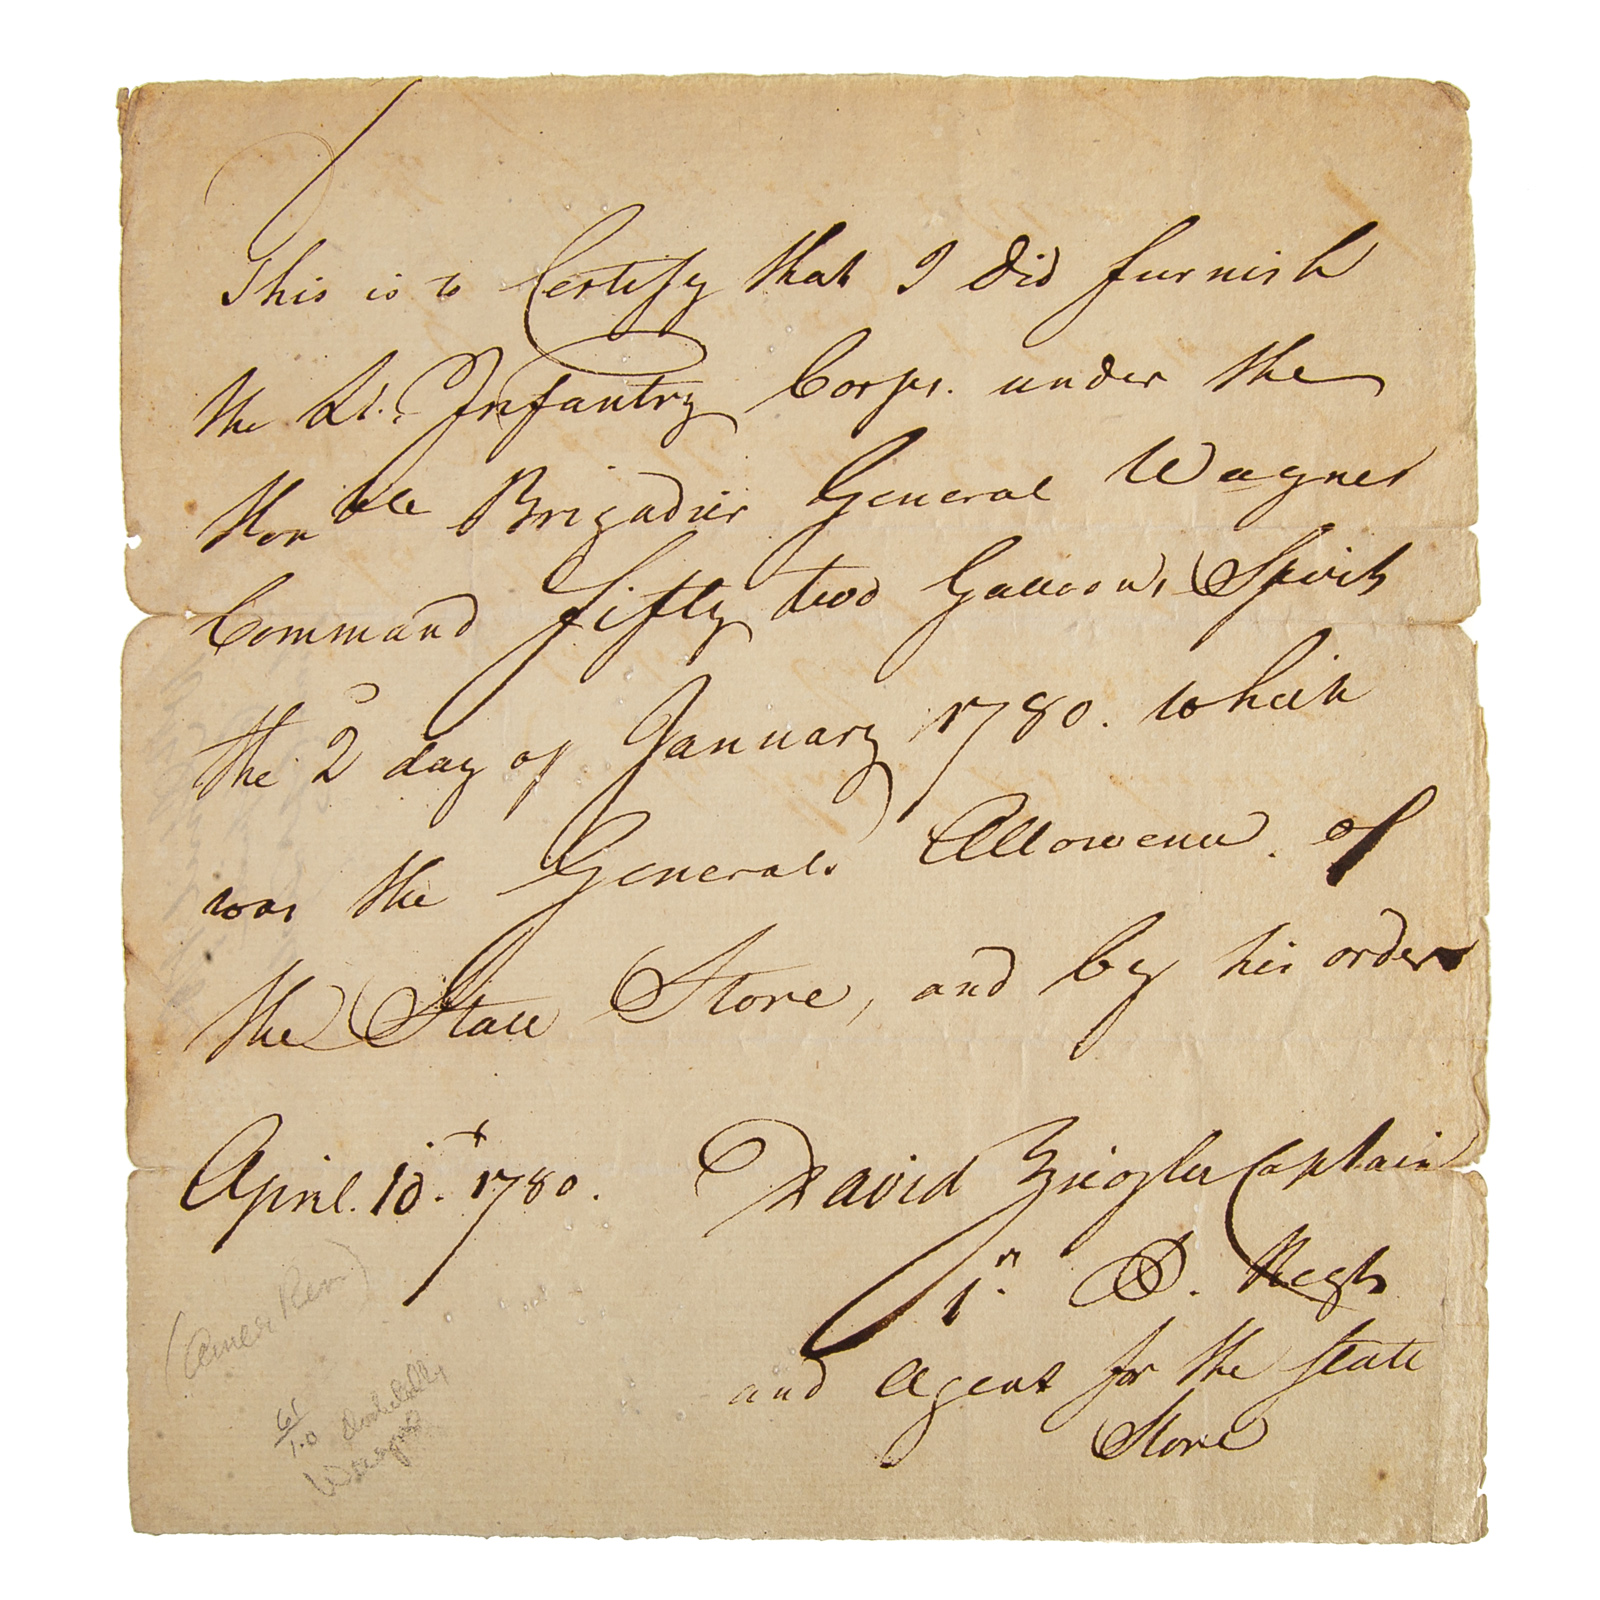 This is to Certify that I did furnish
the Lt. Infantry Corps. under the
Honble Brigadier General Wagnes
Command fifty two Galleons Spirits
the 2d day of January 1780. which
was the Generals Allowence. of
the State Store, and by his order
April. 10.t 1780. David Ziegler Captain
1.n P. Regt
and agent for the State
Store